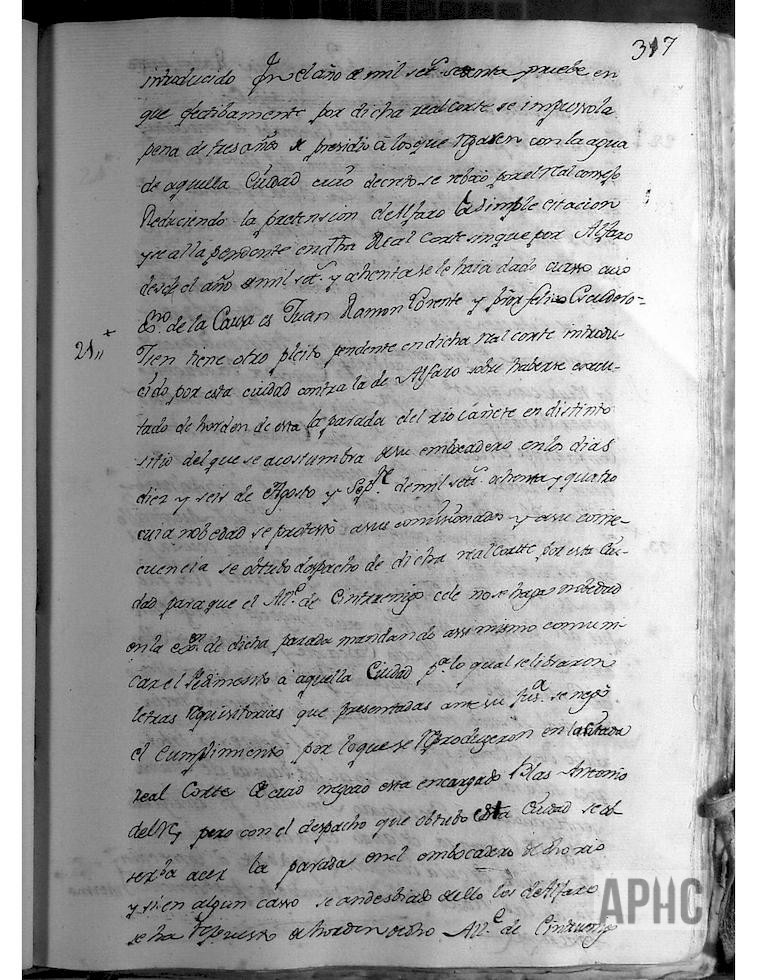 317
introducido En el año de mil setˢ setenta pruebe en
que efectibamente por dicha real corte se impuso la
pena de tres años de presidio á los que regasen con la agua
de aquella Ciudad cuio decreto se reboco por el real consejo
Reduciendo la pretension de Alfaro a simple citacion
y se alla pendente en dha Real Corte sin que por Alfaro
desde el año de mil setˢ. y ochenta se le haia dado curso cuio
Esᵛⁿᵒ de la Causa es Juan Ramon Lorente y pʳᵒʳ felix Escudero =
21,, Tien tiene otro pleito pendente en dicha real corte introdu-
cido por esta ciudad contra la de Alfaro sobre haberse execu-
tado de horden de esta la parada del rio cañete en distinto
sitio del que se acostumbra de su embocadero en los dias
diez y seis de Agosto y Sepᵗʳᵉ. de mil setˢ. ochenta y quatro
cuia nobedad se protestó a sus comisionados y a su conse-
cuencia se obtubo despacho de dicha real corte por esta Ciu-
dad para que el Alᵉ. de Cintruenigo cele no se haga nobedad
en la exᵒⁿ. de dicha parada mandando assi mismo comuni-
car el Pedimento á aquella Ciudad pᵃ. lo qual se libraron
letras requisitorias que presentadas ante su Jusᵃ. se negó
el Cumplimiento por lo que se reprodugeron en la citada
real Corte de cuio negocio esta encargado Blas Antonio
del Rey pero con el despacho que obtubo esta Ciudad se ob-
serba acer la parada en el embocadero de dho rio
y si en algun casso se an desbiado de ello los de Alfaro
se ha repuesto de horden de dho Alᵉ. de Cintruenigo
APHC